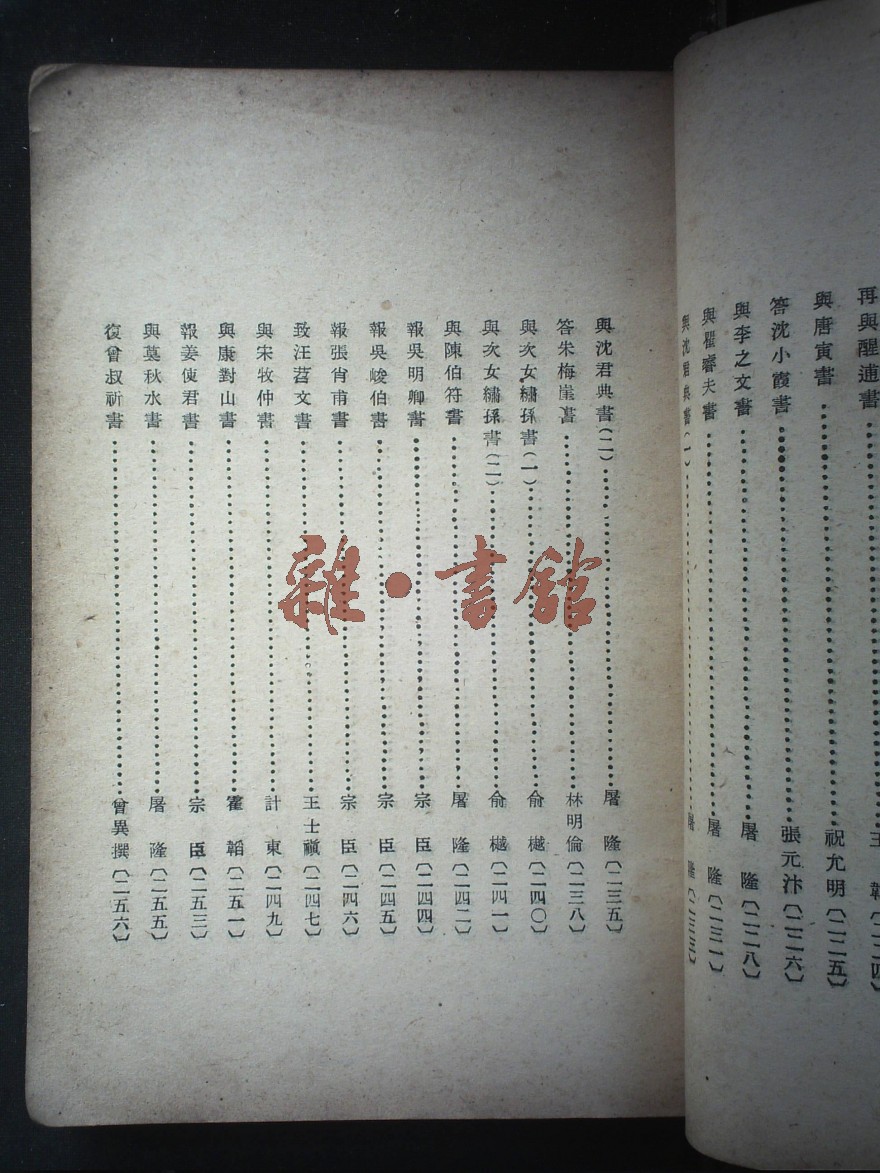 再與醒逋書……王 韜〔二二四〕
與唐寅書……祝允明〔二二五〕
答沈小霞書……張元汴〔二二六〕
與李之文書……屠 隆〔二二八〕
與瞿睿夫書……屠 隆〔二三一〕
與沈君典書(一)……屠 隆〔二三三〕
與沈君典書(二)……屠 隆〔二三五〕
答朱梅崖書……林明倫〔二三八〕
與次女繡孫書(一)……俞 樾〔二四〇〕
與次女繡孫書(二)……俞 樾〔二四一〕
與陳伯符書……屠 隆〔二四二〕
報吳明卿書……宗 臣〔二四四〕
報吳峻伯書……宗 臣〔二四五〕
報張肖甫書……宗 臣〔二四六〕
致汪苕文書……王士禛〔二四七〕
與宋牧仲書……計 東〔二四九〕
與康對山書……霍 韜〔二五一〕
報姜使君書……宗 臣〔二五三〕
與莫秋水書……屠 隆〔二五五〕
復曾叔祈書……曾異撰〔二五六〕
雜·書館